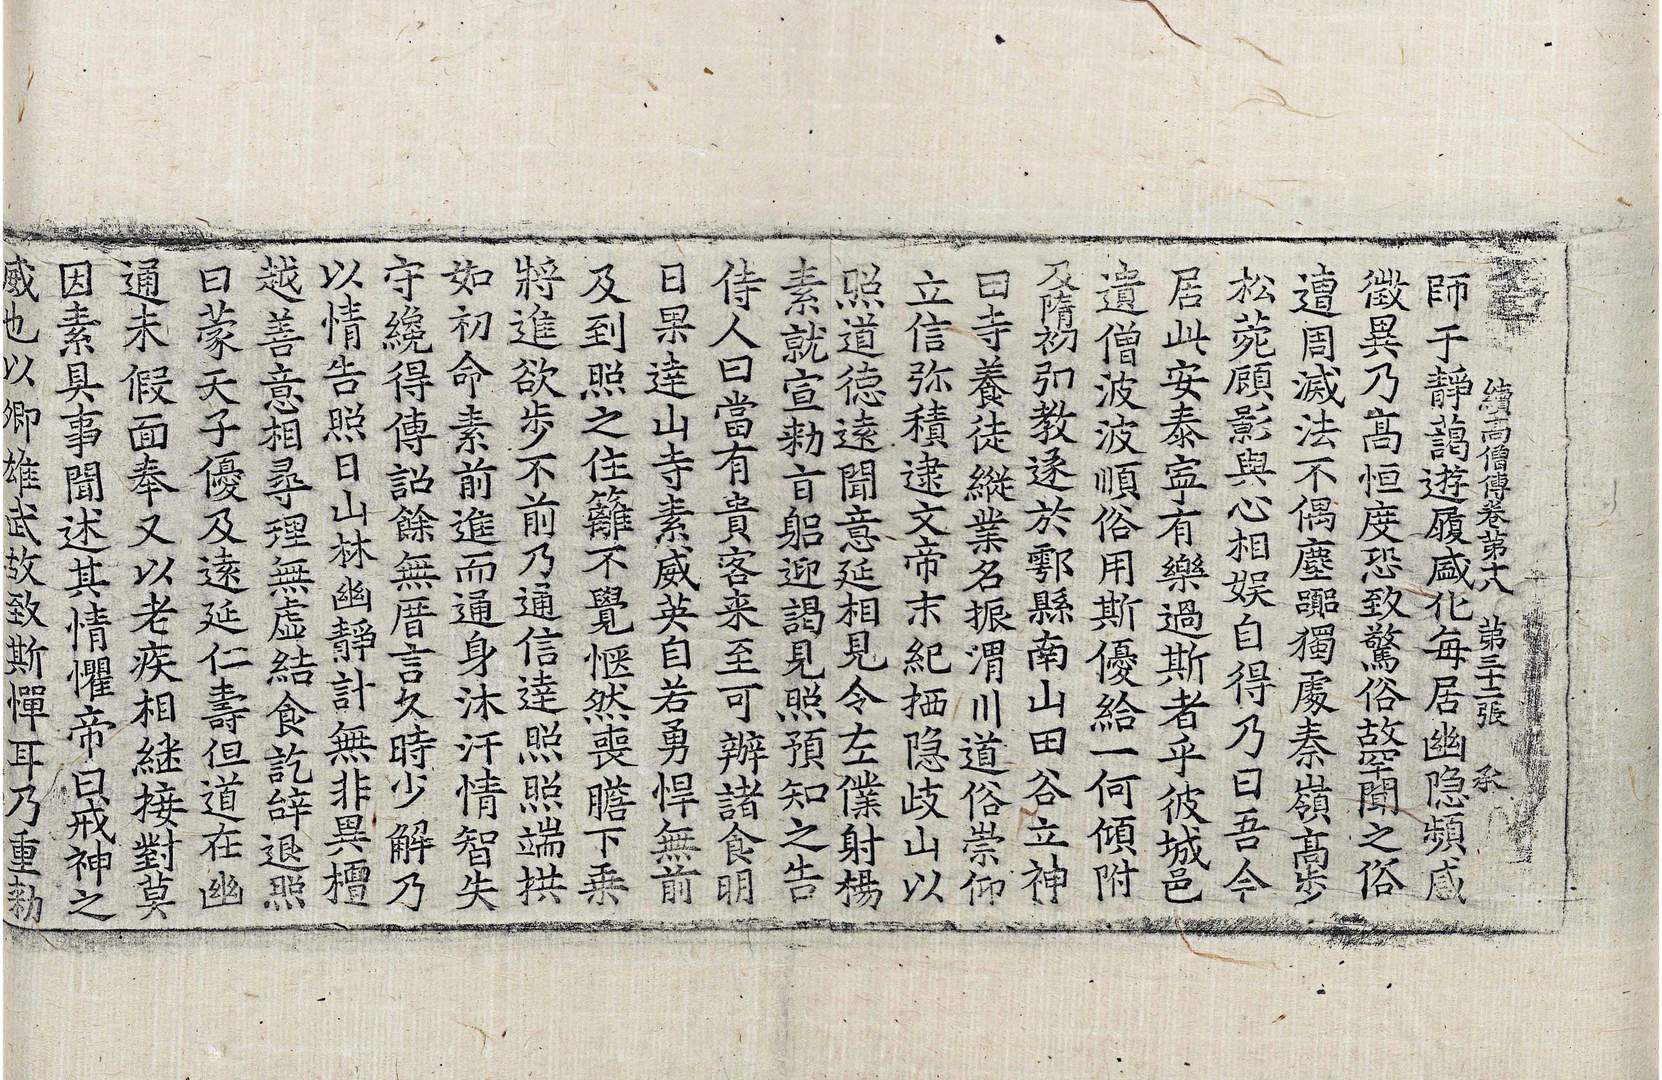 續高僧傳卷第十八　第三十二張　承
師于靜藹遊履感化每居幽隐頻感
徵異乃髙恒度恐致驚俗故罕聞之俗
遭周滅法不偶塵嚻獨處秦嶺髙步
松苑顧影與心相娛自得乃曰吾今
居此安泰寧有樂過斯者乎彼城邑
遺僧波波順俗用斯優給一何傾附
及隋初弘教遂於鄠縣南山田谷立神
曰寺養徒縱業名振渭川道俗崇仰
立信弥積逮文帝末紀栖隐歧山以
照道德遠聞意延相見令左僕射楊
素就宣勑旨躬迎謁見照預知之告
侍人曰當有貴客来至可辦諸食明
日果達山寺素威英自若勇悍無前
及到照之住籬不覺愜然喪膽下乗
將進欲步不前乃通信達照照端拱
如初命素前進而通身沐汗情智失
守纔得傳詔餘無厝言久時少解乃
以情告照曰山林幽靜計無非異檀
越善意相尋理無虚結食訖辝退照
曰蒙天子優及遠延仁壽但道在幽
通未假面奉又以老疾相継接對莫
因素具事聞述其情懼帝曰戒神之
威也以卿雄武故致斯憚耳乃重勑